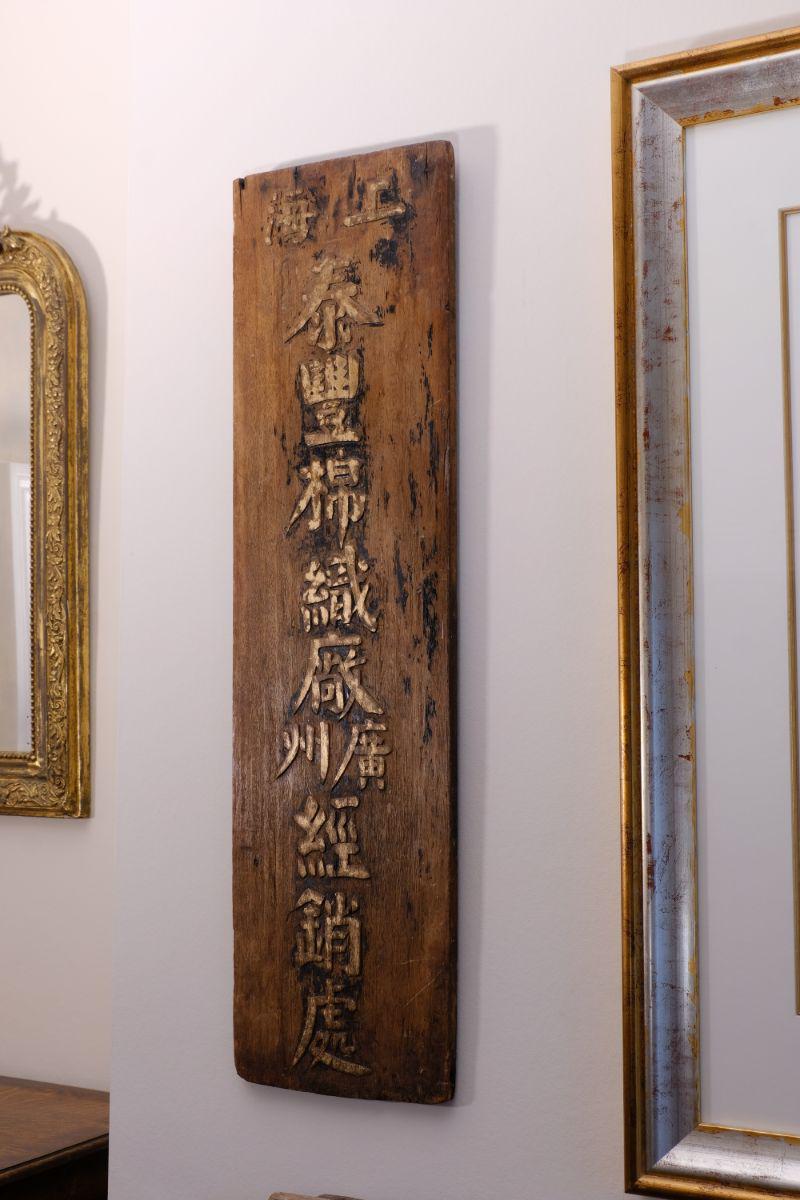 上海
泰豐棉織廠
廣州
經銷處